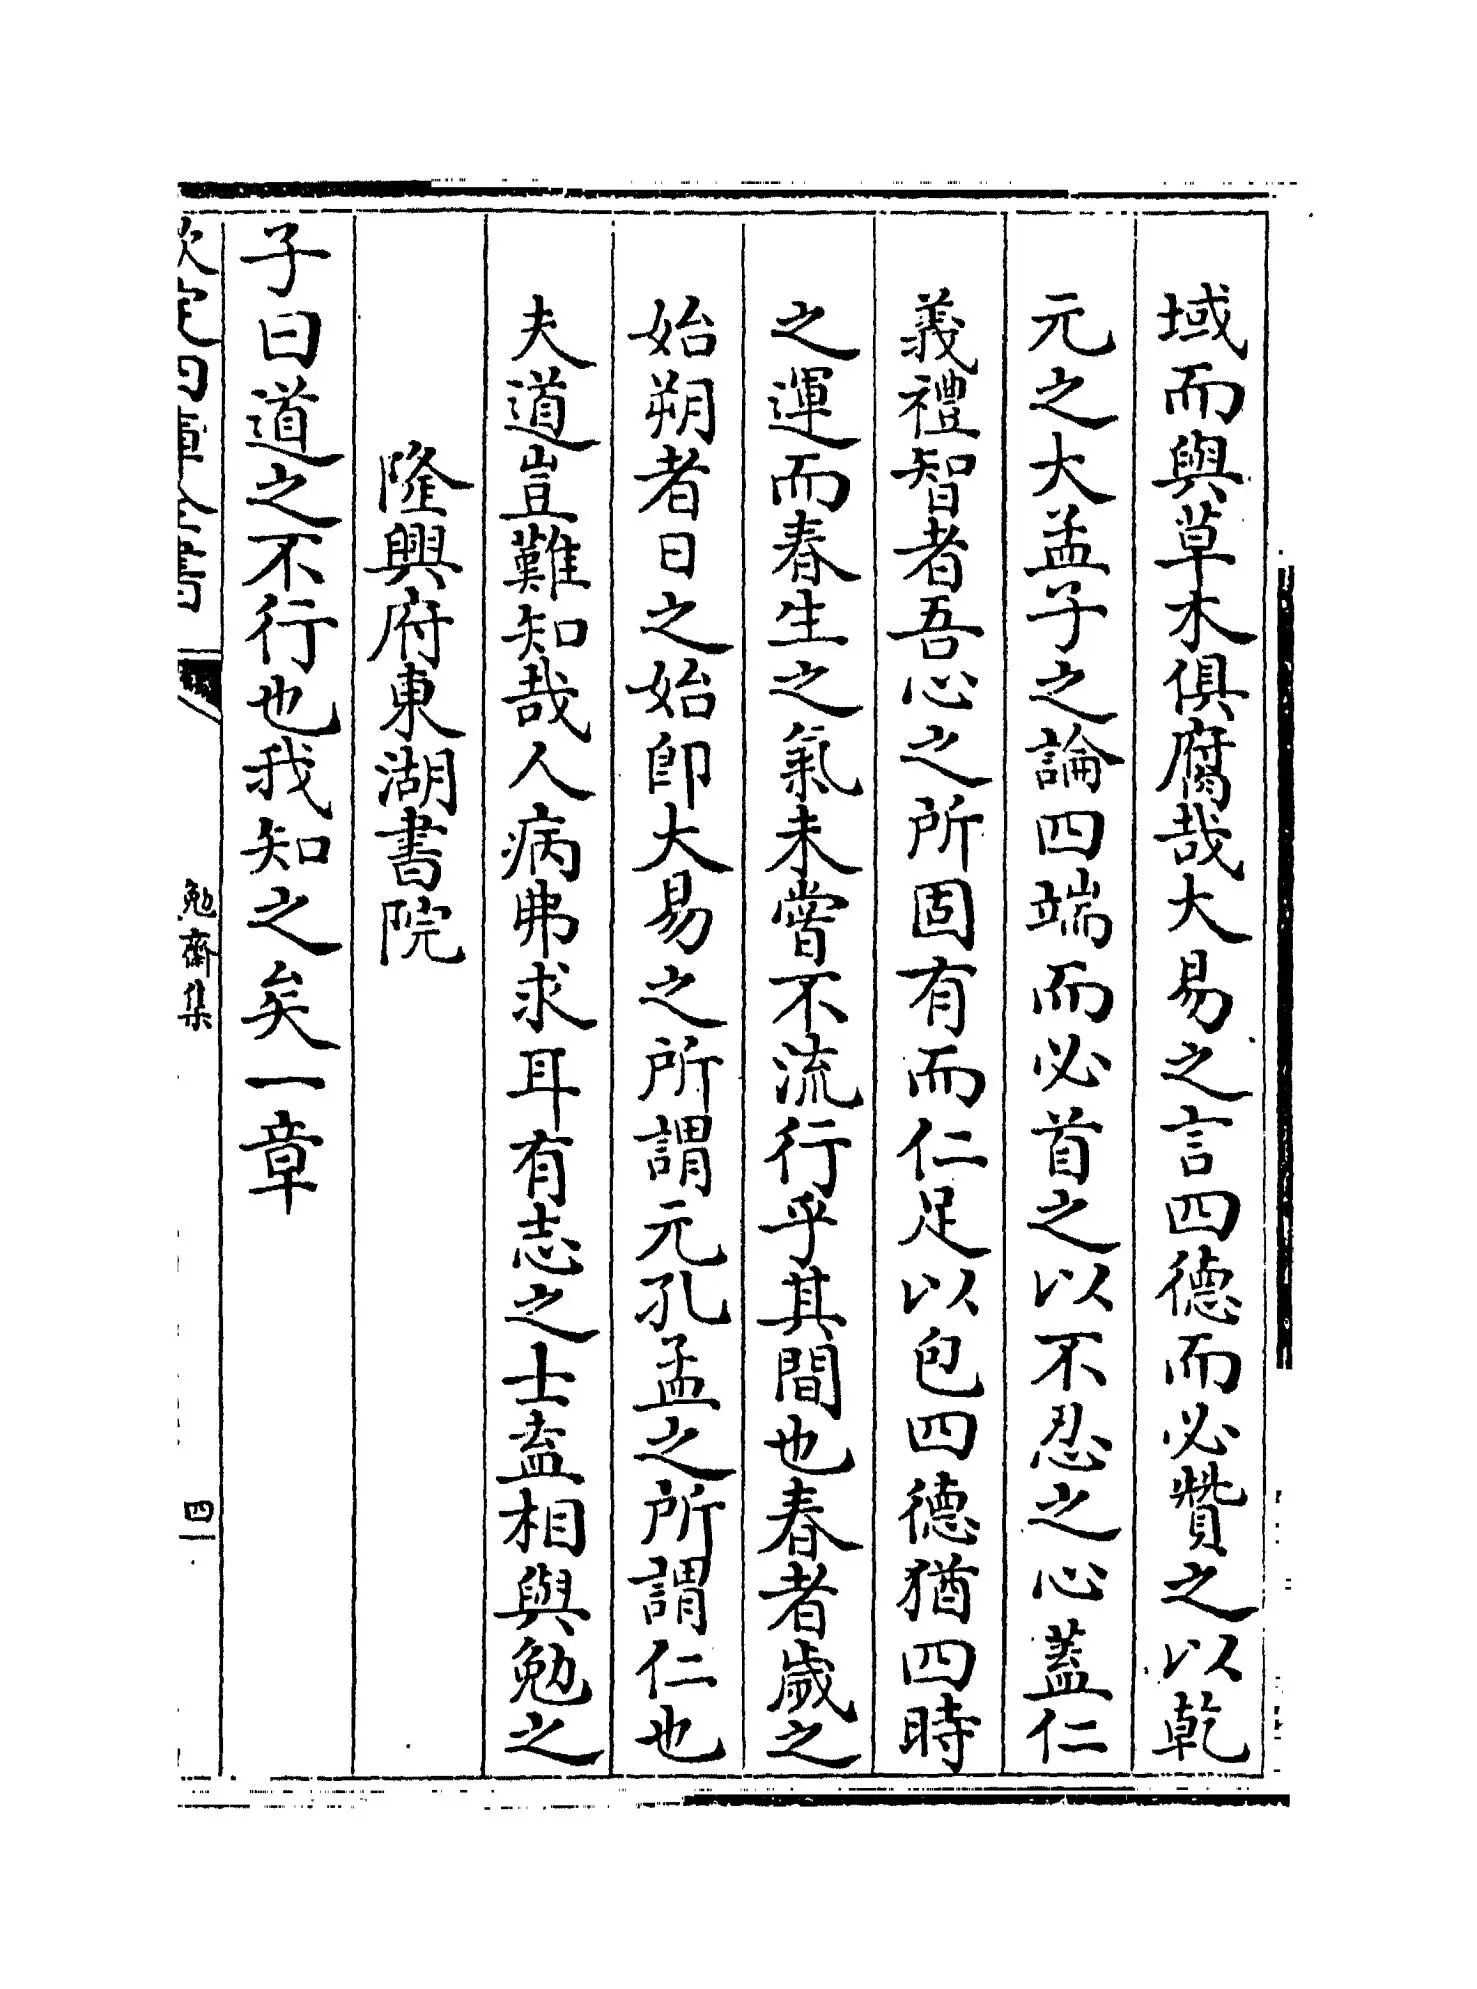 域而與草木俱腐哉大易之言四德而必贊之以乾
元之大孟子之論四端而必首之以不忍之心蓋仁
義禮智者吾心之所固有而仁足以包四德猶四時
之運而春生之氣未嘗不流行乎其間也春者歲之
始朔者日之始即大易之所謂元孔孟之所謂仁也
夫道豈難知哉人病弗求耳有志之士盍相與勉之
隆興府東湖書院
子曰道之不行也我知之矣一章
欽定四庫全書
勉齋集
四